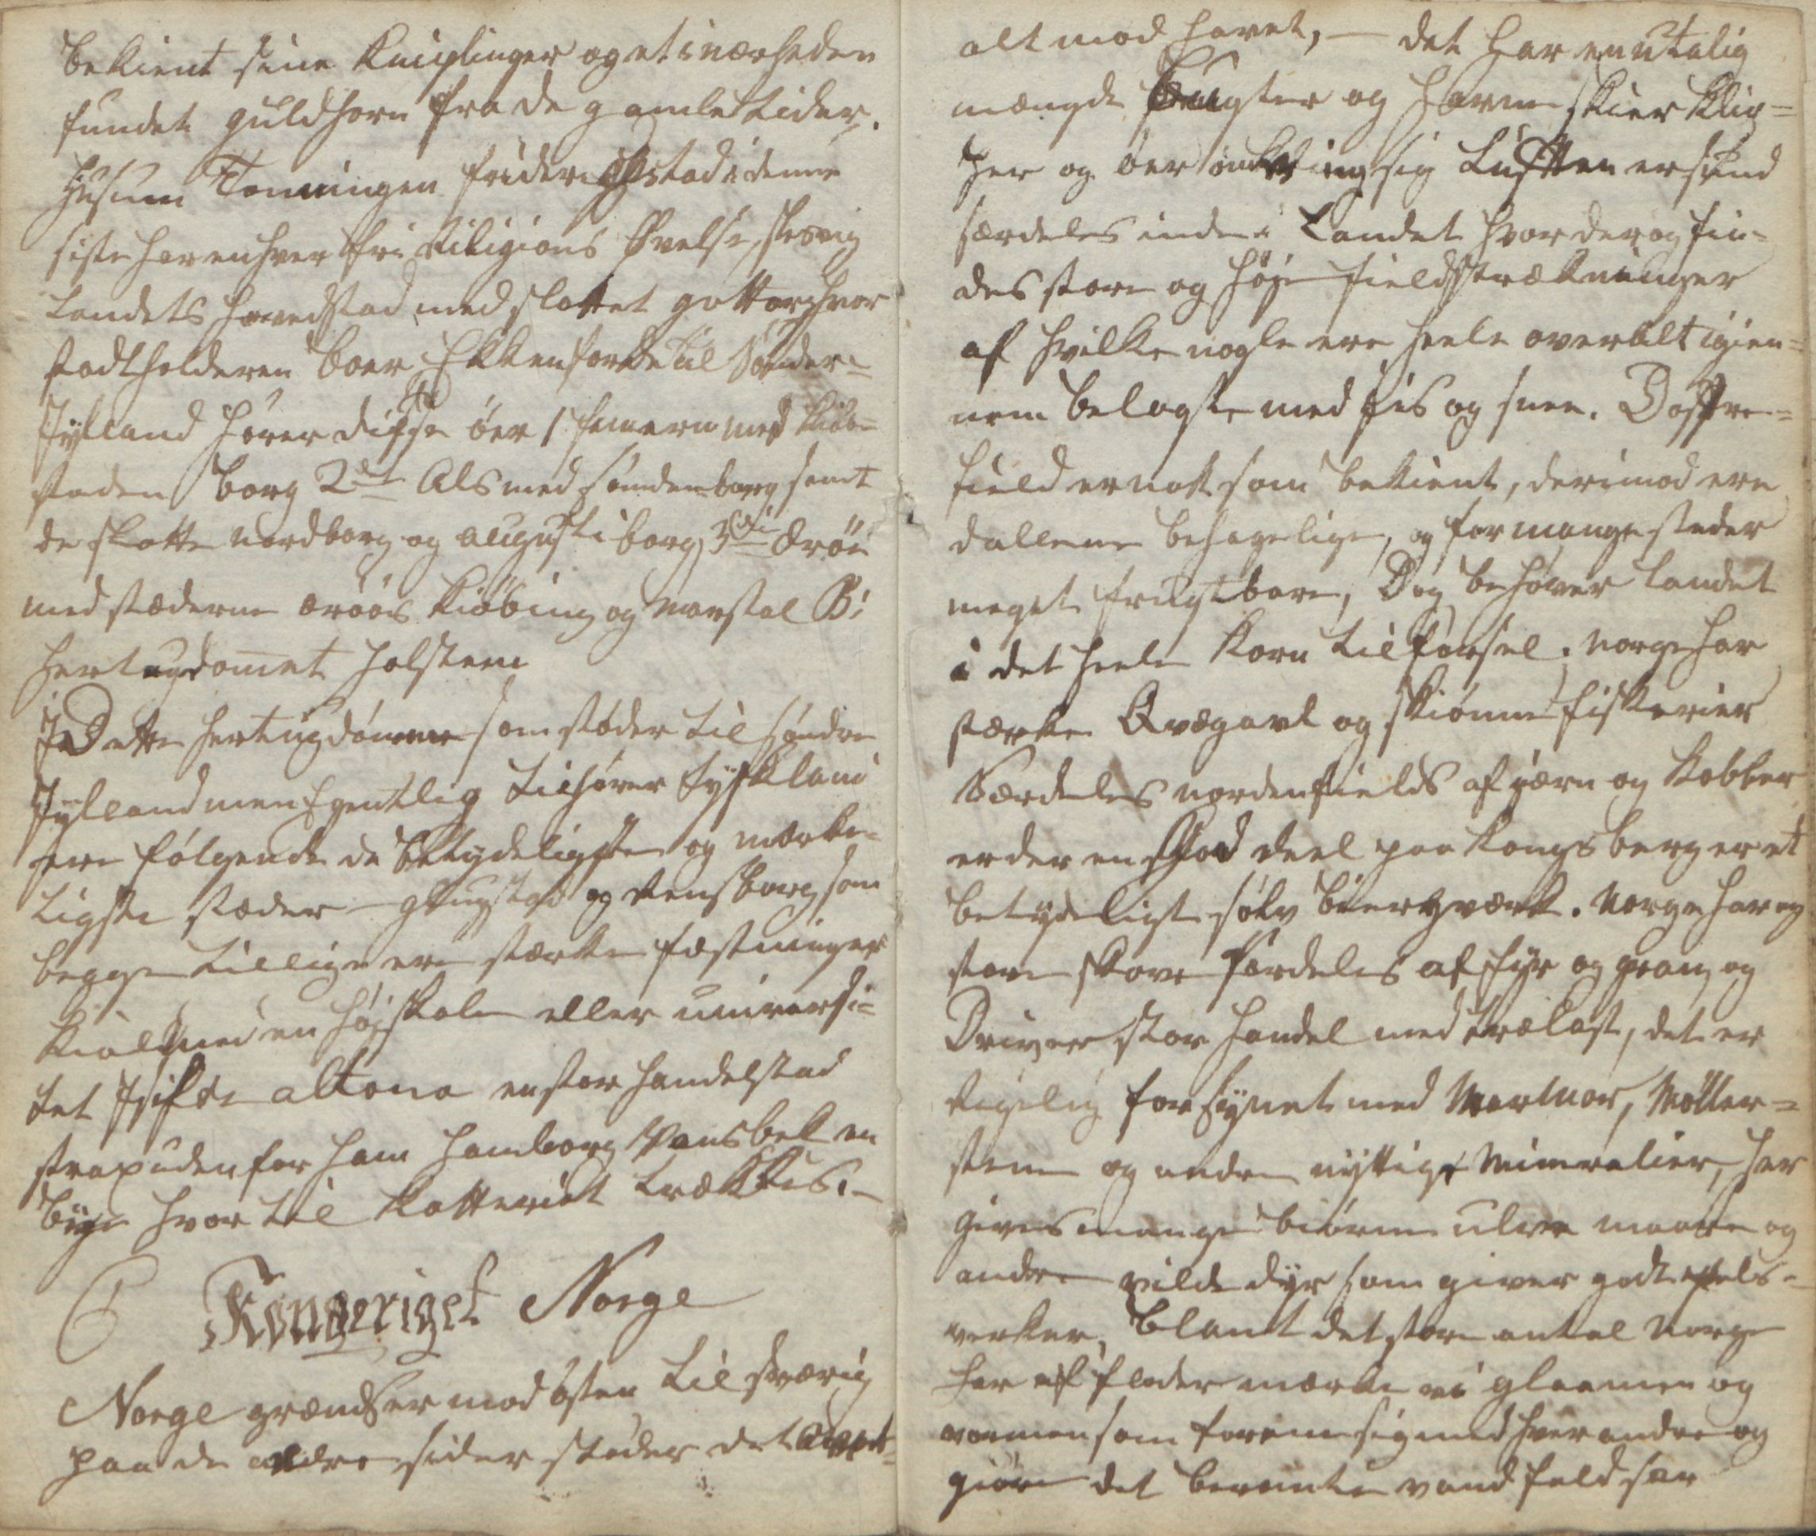 bekient sine Kniplinger og et i nærheden
fundet guldhorn fra de gamle tider.
Husum Tonningen friderichstad i denne
siste har enhver fri Religions Øvelse, slesvig
Landets hovedstad med slottet gottorp hvor
stadtholderen boer Ekkenforde til Sønder-
Jylland hører disse öer 1 femern med Kiöb-
staden borg 2det Als med sönderborg samt
de slotte nordborg og augustiborg, 3die Ærøe
med stæderne ærøes Kiöbing og Marstal B:
hertugdommet Holsteen
I Dette hertugdömme som støder til söndre
Jylland men Egentlig tilhører tyskland
ere følgende de betydeligste og mærke-
ligste stæder glugstad og Rensborg som
begge tillige ere stærke fæstninger
Kiel med en høiskole eller universi-
tet Itzehoe altona en stor handelstad
strax uden for ham hamborg Vansbek en
bye hvor til Lotteriet trækkes.
C Kongeriget Norge
Norge grændser mod östen til sværig
paa de andre sider støder det
alt mod havet, — det har en utalig
mængde bugter og havne skier klip-
per og öer omkring sig Luften er sund
særdeles inde i Landet hvor der og fin-
des store og høje fieldstrækninger
af hvilke nogle ere heele overalt igien-
nem belagte med Jis og snee. Dofre-
field er nok som bekient, derimod ere
dallene behagelige, og for mange steder
meget frugtbare, Dog behøver landet
i det heele Korn tilførsel. norge har
stærke Qvægavl og skiönne fiskerier
Særdeles nordenfields af jærn og Kobber
er der en god deel paa Kongsberg er et
betydeligt sølv bierqværk. Norge har og
store skove særdeles af fyr og gran og
Driver stor handel med trælast, det er
rigelig forsynet med Marmor, Møller-
steene og andre nyttige Mineralier, her
gives mange biörne ulve maare og
andre vilde dyr som giver godt pels-
verker, blant det store antal norge
har af floder mærke vi glaamen og
vormen som forene sig med hverandre og
giøre det berømte vandfald sar